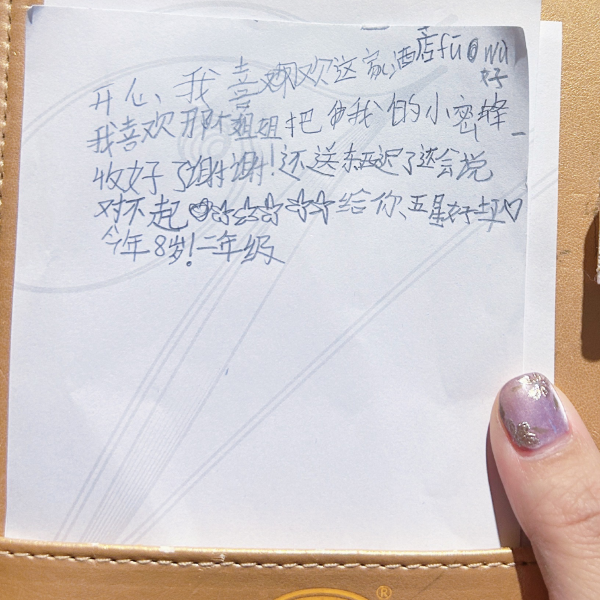 开心、我喜欢这家酒店fú wù
好
我喜欢那个姐姐把我的小蜜蜂
收好了谢谢!还送东西迟了还会说
对不起♡☆☆☆☆☆给你、五星好评♡
今年8岁!二年级
®